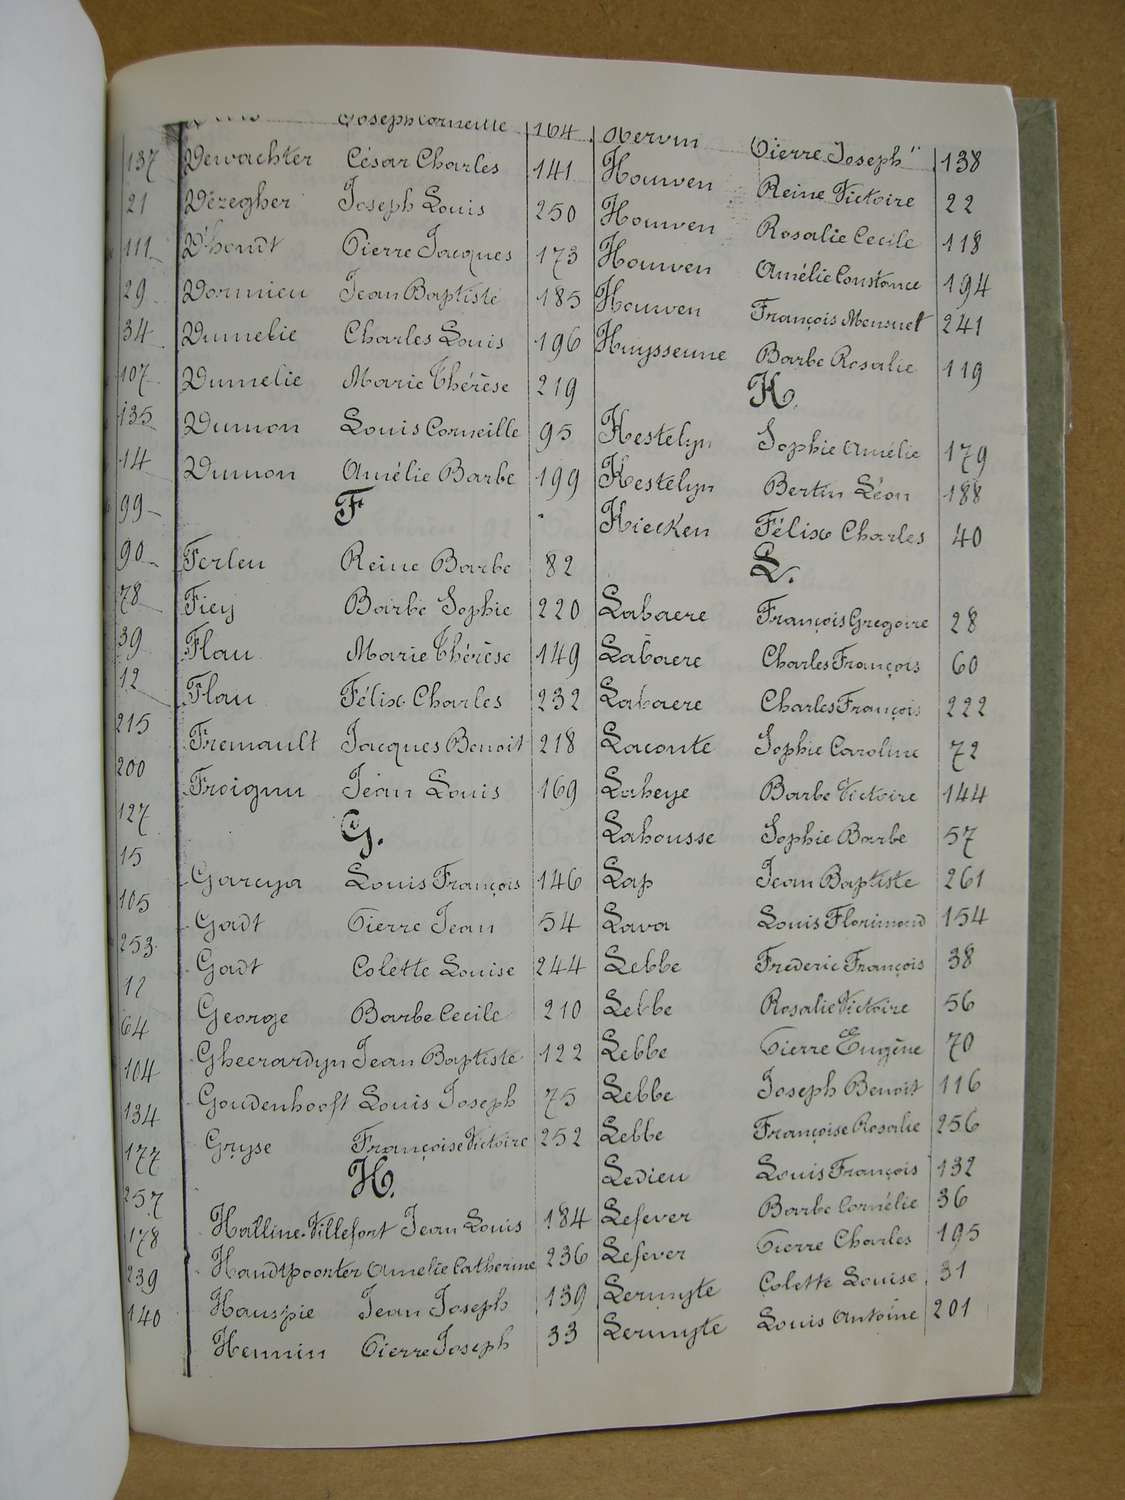 Joseph Corneille 164
137 Dewachter César Charles 141
21 Dézegher Joseph Louis 250
111 D'hondt Pierre Jacques 173
29 Dormieu Jean Baptiste 185
34 Dumelie Charles Louis 196
107 Dumelie Marie Thérèse 219
135 Dumon Louis Corneille 95
14 Dumon Amélie Barbe 199
99 F
90 Ferleu Reine Barbe 82
78 Fiey Barbe Sophie 220
39 Flau Marie Thérèse 149
12 Flau Félix Charles 232
215 Fremault Jacques Benoit 218
200 Froignu Jean Louis 169
127 G.
15
105 Gareya Louis François 146
253 Gadt Pierre Jean 54
12 Gadt Colette Louise 244
64 George Barbe Cecile 210
104 Gheerardyn Jean Baptiste 122
134 Goudenhooft Louis Joseph 75
177 Gryse Françoise Victoire 252
257 H.
178 Halline-Villefort Jean Louis 184
239 Handtpoorter Amelie Catherine 236
140 Hauspie Jean Joseph 139
Hennin Pierre Joseph 33
Hervin Pierre Joseph 138
Houwen Reine Victoire 22
Houwen Rosalie Cecile 118
Houwen Amélie Constance 194
Houwen François Mensuet 241
Huysseune Barbe Rosalie 119
K.
Kestelyn Sophie Amélie 179
Kestelyn Bertin Léon 188
Kiecken Félix Charles 40
L.
Labaere François Gregoire 28
Labaere Charles François 60
Labaere Charles François 222
Laconte Sophie Caroline 72
Laheye Barbe Victoire 144
Lahousse Sophie Barbe 57
Lap Jean Baptiste 261
Lava Louis Florimond 154
Lebbe Frederic François 38
Lebbe Rosalie Victoire 56
Lebbe Pierre Eugène 70
Lebbe Joseph Benoit 116
Lebbe Françoise Rosalie 256
Ledieu Louis François 132
Lefever Barbe Cornélie 36
Lefever Pierre Charles 195
Lermyte Colette Louise 31
Lermyte Louis Antoine 201